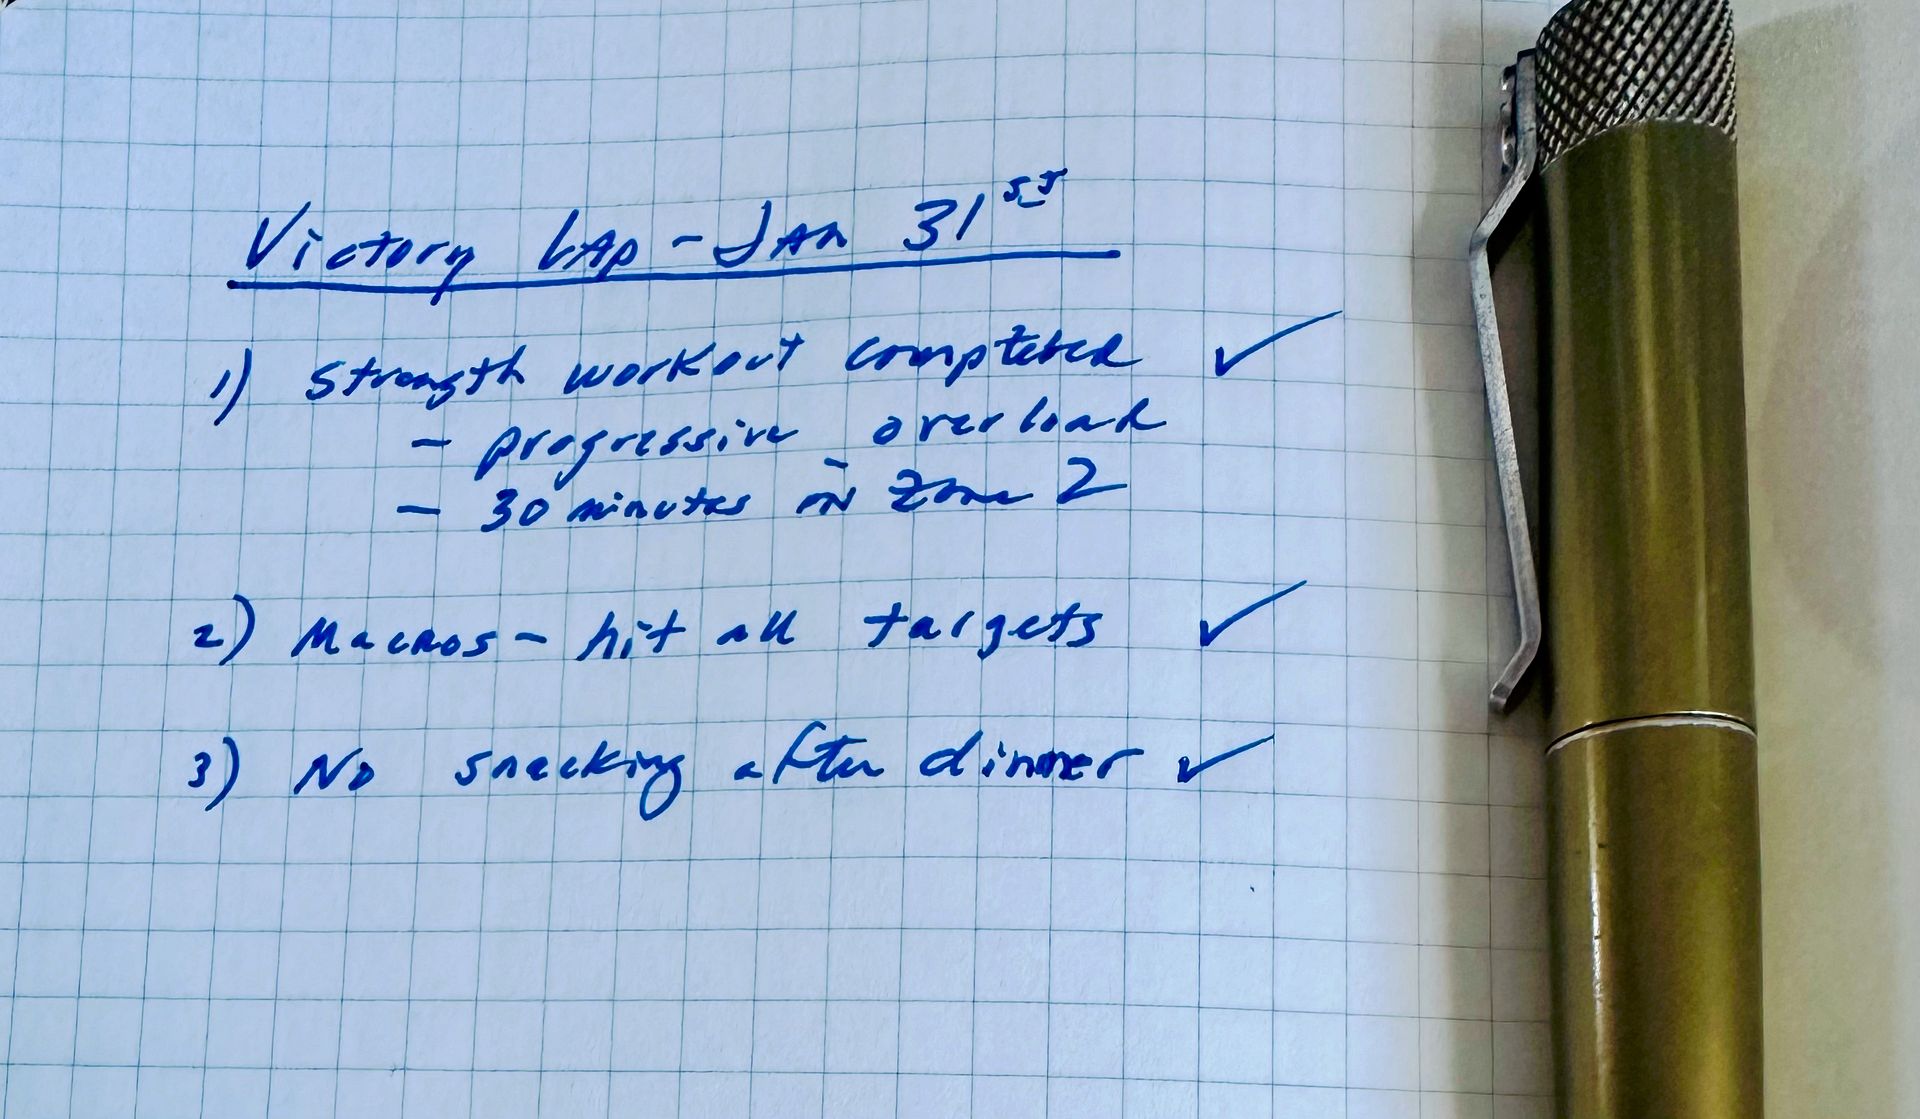 Victory LAP - JAN 31st
1) Strength workout completed ✓
- progressive overload
- 30 minutes in zone 2
2) Macros - hit all targets ✓
3) No snacking after dinner ✓